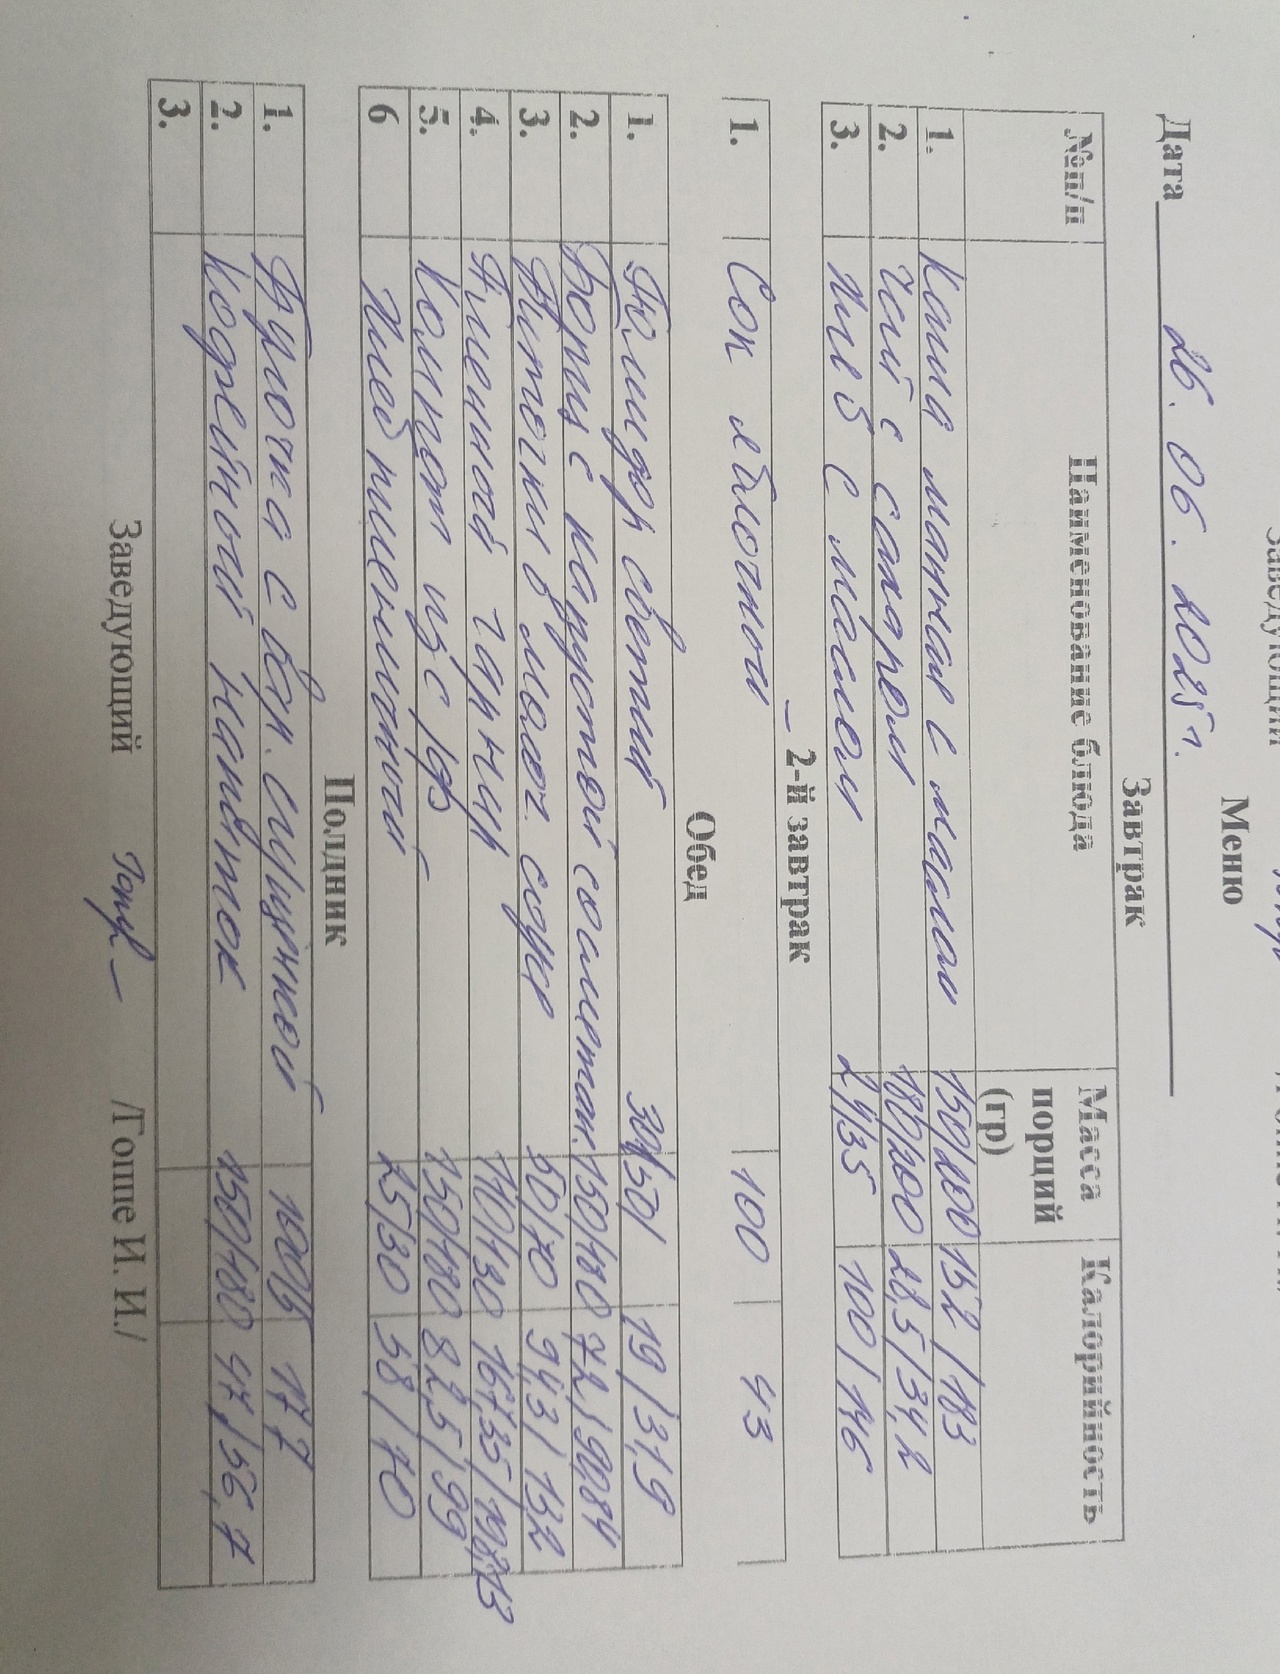 Заведующий
Меню
Дата 26.06.2025 г.
Завтрак
№п/п Наименование блюда Масса порций (гр) Калорийность
1. Каша манная с маслом 150/200 152/183
2. Чай с сахаром 180/200 28,5/34,2
3. Хлеб с маслом 24/35 100/146
2-й завтрак
1. Сок яблочный 100 43
Обед
1. Помидор свежий 30/50 19/31,9
2. Борщ с капустой сометан. 150/180 72/90,84
3. Биточки в молоч. соусе 50/70 94,3/132
4. гарнир 110/130 167,35/198,13
5. Компот из с/ф 150/180 82,5/99
6 Хлеб пшеничный 25/30 58/70
Полдник
1. Булочка с 177
2. Кофейный напиток 150/180 47/56,7
3.
Заведующий /Гоппе И. И./